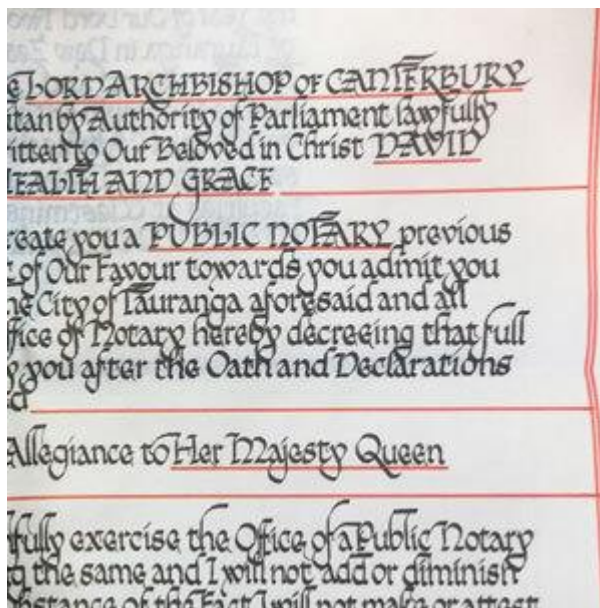 e LORD ARCHBISHOP OF CANTERBURY
itan by Authority of Parliament lawfully
itten to Our Beloved in Christ DAVID
HEALTH AND GRACE
reate you a PUBLIC NOTARY previous
t of Our Favour towards you admit you
he City of Tauranga aforesaid and all
fice of Notary hereby decreeing that full
y you after the Oath and Declarations
d
Allegiance to Her Majesty Queen
hfully exercise the Office of a Public Notary
g the same and I will not add or diminish
bstance of the Fact I will not make or attest